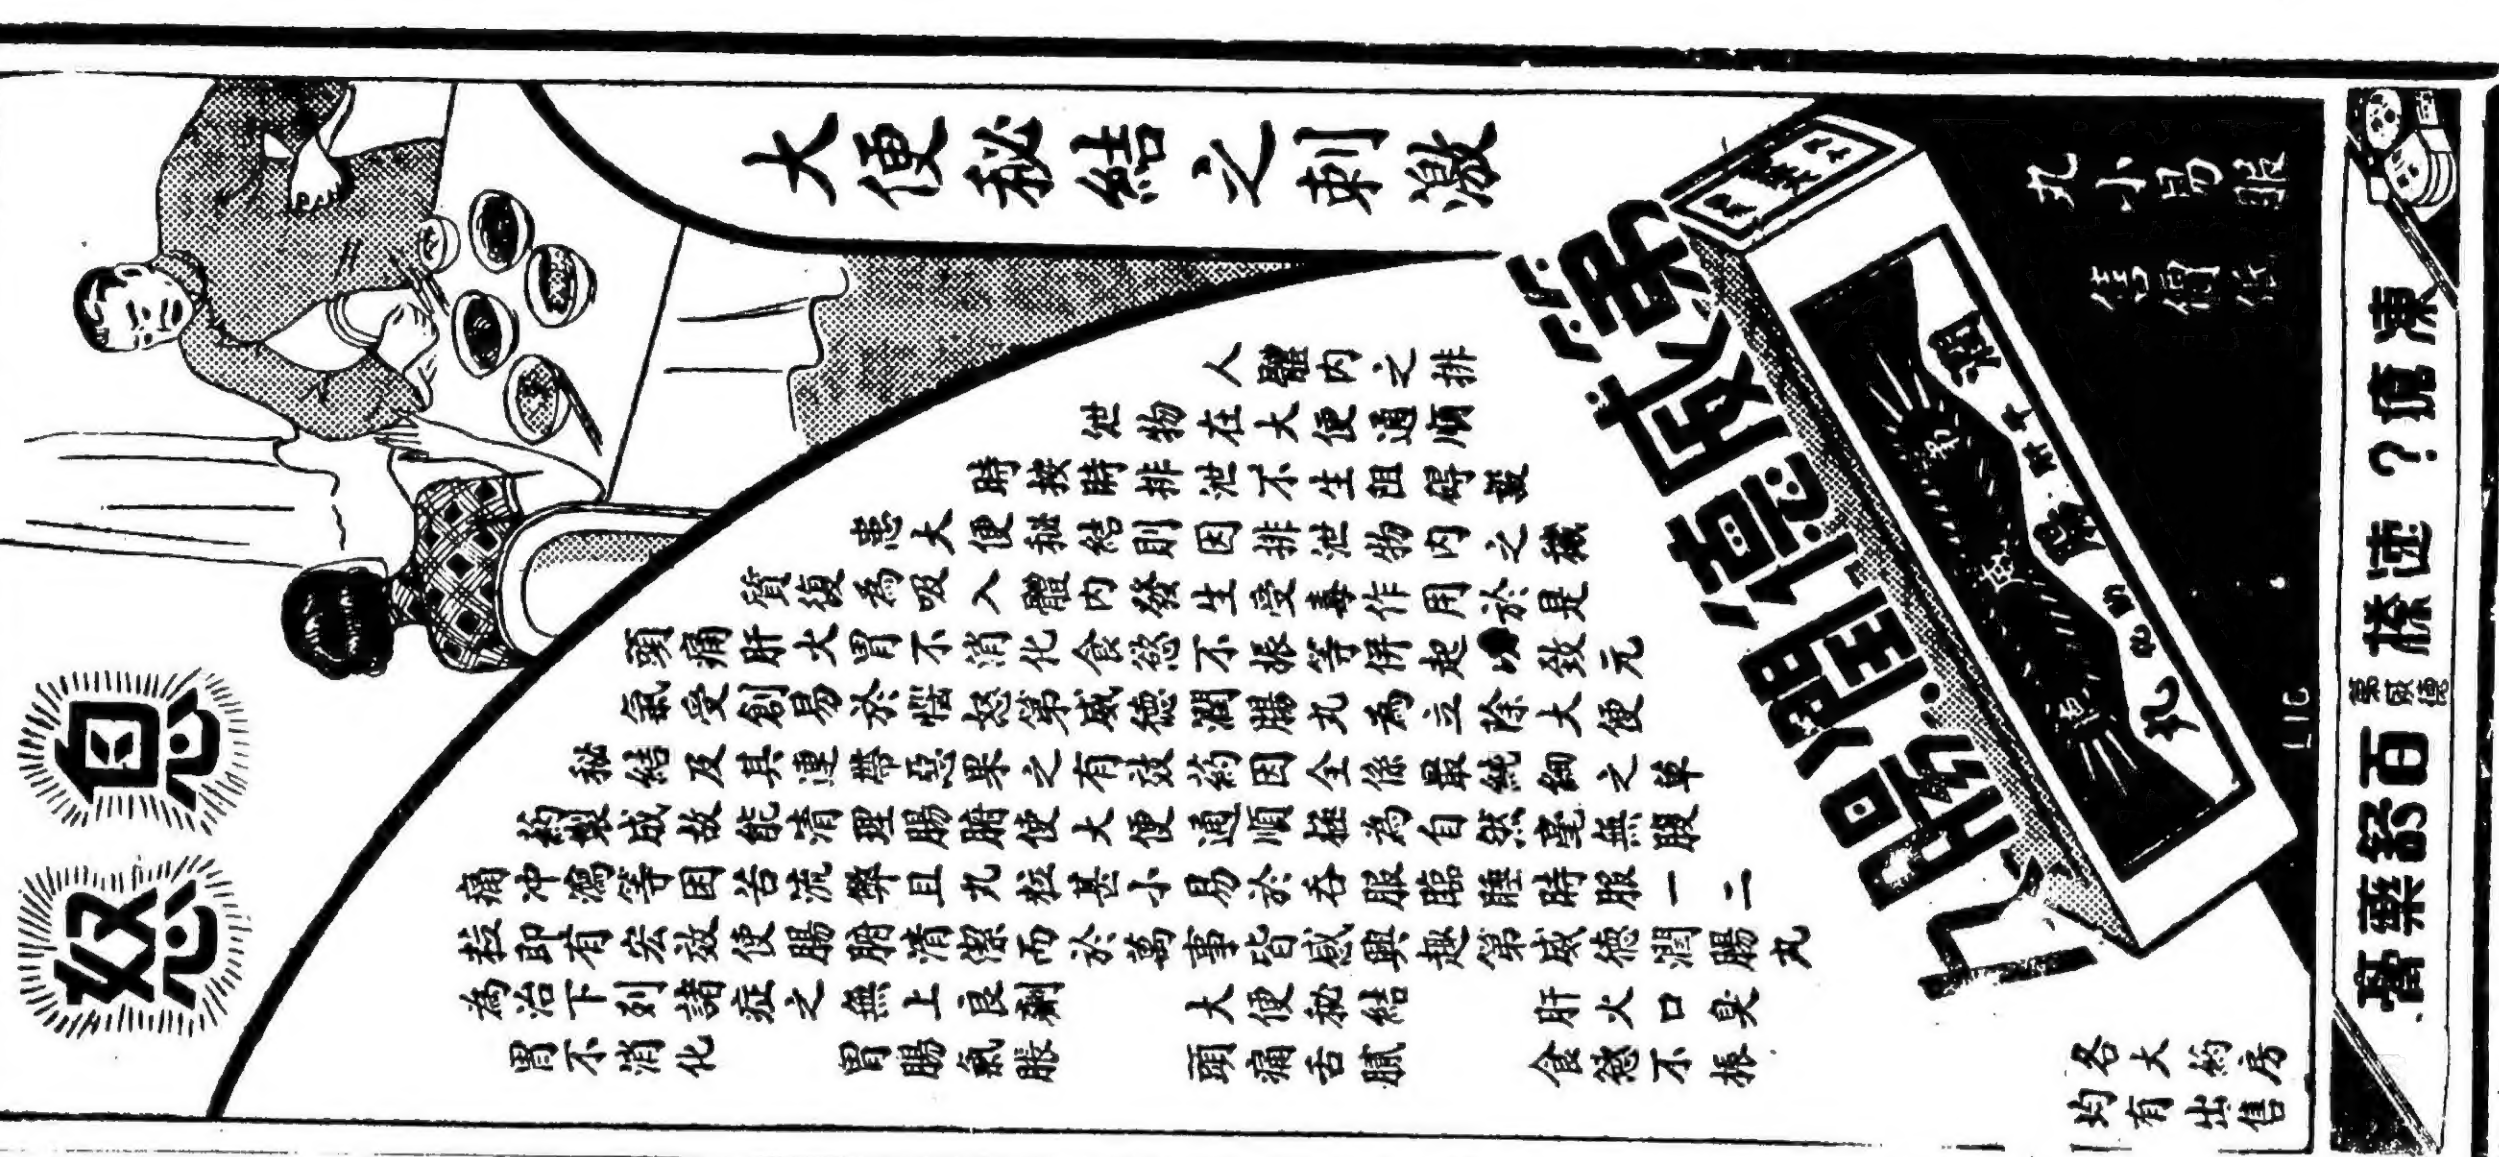 大便秘結之刺激
怱怒
人體內之排
泄物在大便通順
時按時排泄不生阻碍設
患大便秘結則因排泄物內之穢
質復為吸入體內發生受毒作用於是
頭痛肝火胃不消化食慾不振等併起以致元
氣受創易於惱怒第威德潤腸丸為立除大便
秘結及其連帶惡果之有效葯因全係最純細之草
葯製成故能清理腸腑使大便通順極為自然毫無腹
痛冲瀉等困苦流弊且丸粒甚小易於吞服臨睡時服一二
粒即有宏效使腸腑清潔而於萬事皆感興趣第威德潤腸丸
為治下列諸症之無上良劑 大便秘結 肝火口臭
胃不消化 胃腸氣脹 頭痛舌膩 食慾不振
第威德潤腸丸
丸小易服
潤腸丸
217
各大葯房
均有出售
凍瘡?速搽
第威德
百舒藥膏